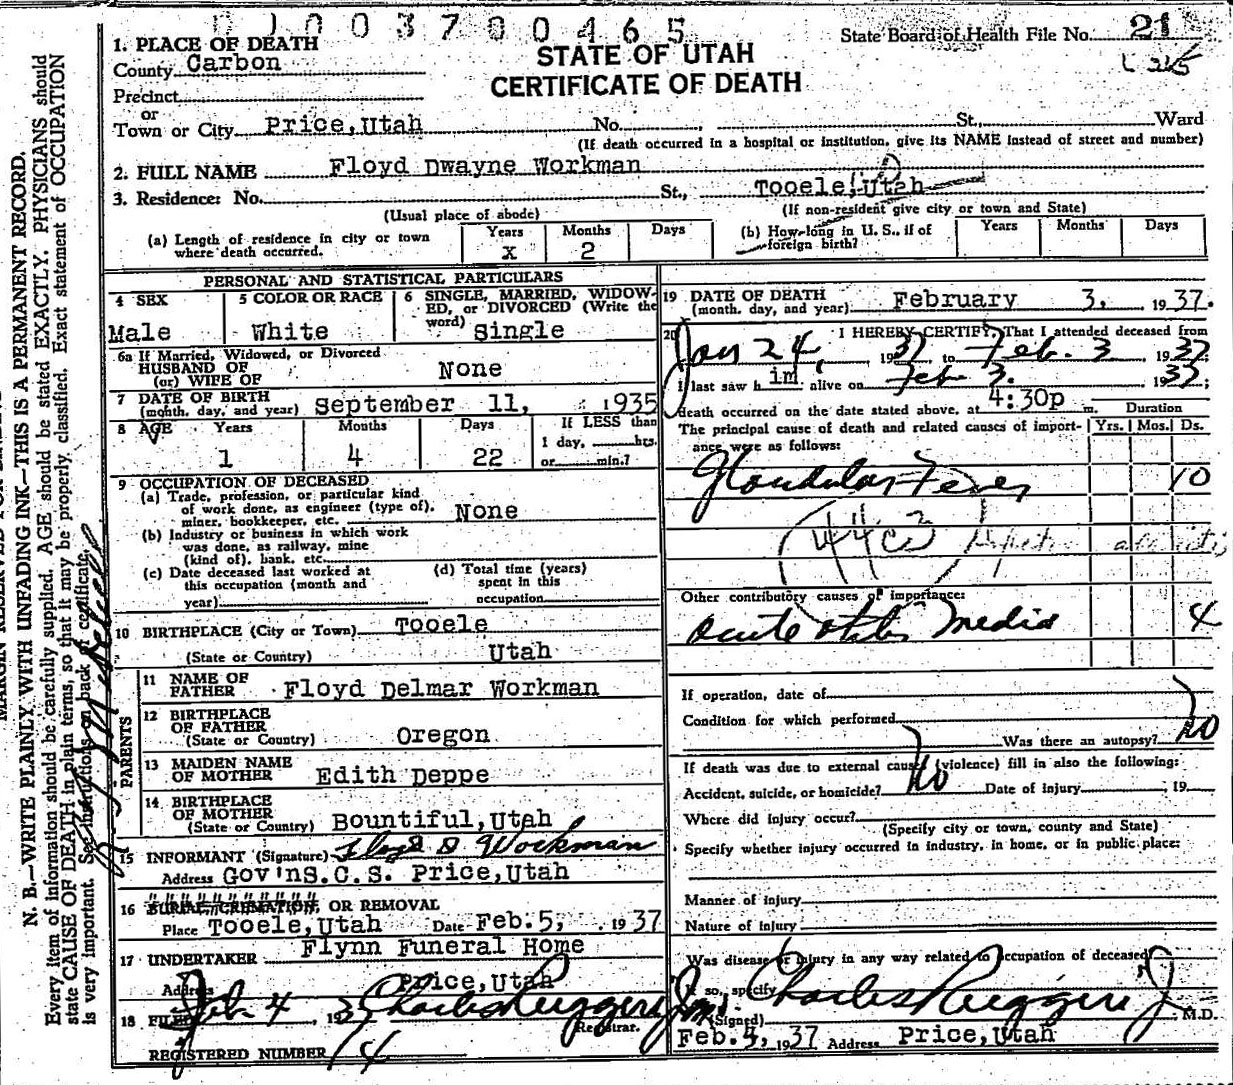 01003700465
State Board of Health File No. 21
1. PLACE OF DEATH
County Carbon
STATE OF UTAH
CERTIFICATE OF DEATH
Precinct
or
Town or City Price, Utah No. St., Ward
(If death occurred in a hospital or institution, give its NAME instead of street and number)
2. FULL NAME Floyd Dwayne Workman
3. Residence: No. St., Tooele, Utah
(Usual place of abode) (If non-resident give city or town and State)
(a) Length of residence in city or town where death occurred. Years x Months 2 Days
(b) How long in U. S., if of foreign birth? Years Months Days
PERSONAL AND STATISTICAL PARTICULARS
4 SEX Male
5 COLOR OR RACE White
6 SINGLE, MARRIED, WIDOWED, or DIVORCED (Write the word) Single
6a If Married, Widowed, or Divorced
HUSBAND OF
(or) WIFE OF None
7 DATE OF BIRTH
(month, day, and year) September 11, 1935
8 AGE Years 1 Months 4 Days 22 If LESS than
1 day, hrs.
or min.?
9 OCCUPATION OF DECEASED
(a) Trade, profession, or particular kind
of work done, as engineer (type of),
miner, bookkeeper, etc. None
(b) Industry or business in which work
was done, as railway, mine
(kind of), bank, etc.
(c) Date deceased last worked at
this occupation (month and
year)
(d) Total time (years)
spent in this
occupation
10 BIRTHPLACE (City or Town) Tooele
(State or Country) Utah
PARENTS
11 NAME OF
FATHER Floyd Delmar Workman
12 BIRTHPLACE
OF FATHER
(State or Country) Oregon
13 MAIDEN NAME
OF MOTHER Edith Deppe
14 BIRTHPLACE
OF MOTHER
(State or Country) Bountiful, Utah
15 INFORMANT (Signature) Floyd D Workman
Address Gov'nS.C.S. Price, Utah
16 BURIAL, CREMATION, OR REMOVAL
Place Tooele, Utah Date Feb. 5, 1937
17 UNDERTAKER Flynn Funeral Home
Address Price, Utah
18 FILED Feb 4, 1937 Charles Ruggeri
Registrar.
REGISTERED NUMBER 14
19 DATE OF DEATH
(month, day, and year) February 3, 1937.
20 I HEREBY CERTIFY, That I attended deceased from
Jan 24, 1937 to Feb. 3 1937;
I last saw him alive on Feb 3. 1937;
death occurred on the date stated above, at 4:30p m. Duration
The principal cause of death and related causes of importance were as follows: Yrs. Mos. Ds.
Glandular Fever 10
44c3
Other contributory causes of importance:
acute otitis media 4
If operation, date of
Condition for which performed
Was there an autopsy? No
If death was due to external cause (violence) fill in also the following:
Accident, suicide, or homicide? No Date of injury 19
Where did injury occur?
(Specify city or town, county and State)
Specify whether injury occurred in industry, in home, or in public place:
Manner of injury
Nature of injury
Was disease or injury in any way related to occupation of deceased
If so, specify
(Signed) Charles Ruggeri Jr M.D.
Feb. 4, 1937 Address Price, Utah
N. B.—WRITE PLAINLY, WITH UNFADING INK—THIS IS A PERMANENT RECORD.
Every item of information should be carefully supplied. AGE should be stated EXACTLY. PHYSICIANS should
state CAUSE OF DEATH in plain terms, so that it may be properly classified. Exact statement of OCCUPATION
is very important. See instructions on back of certificate.